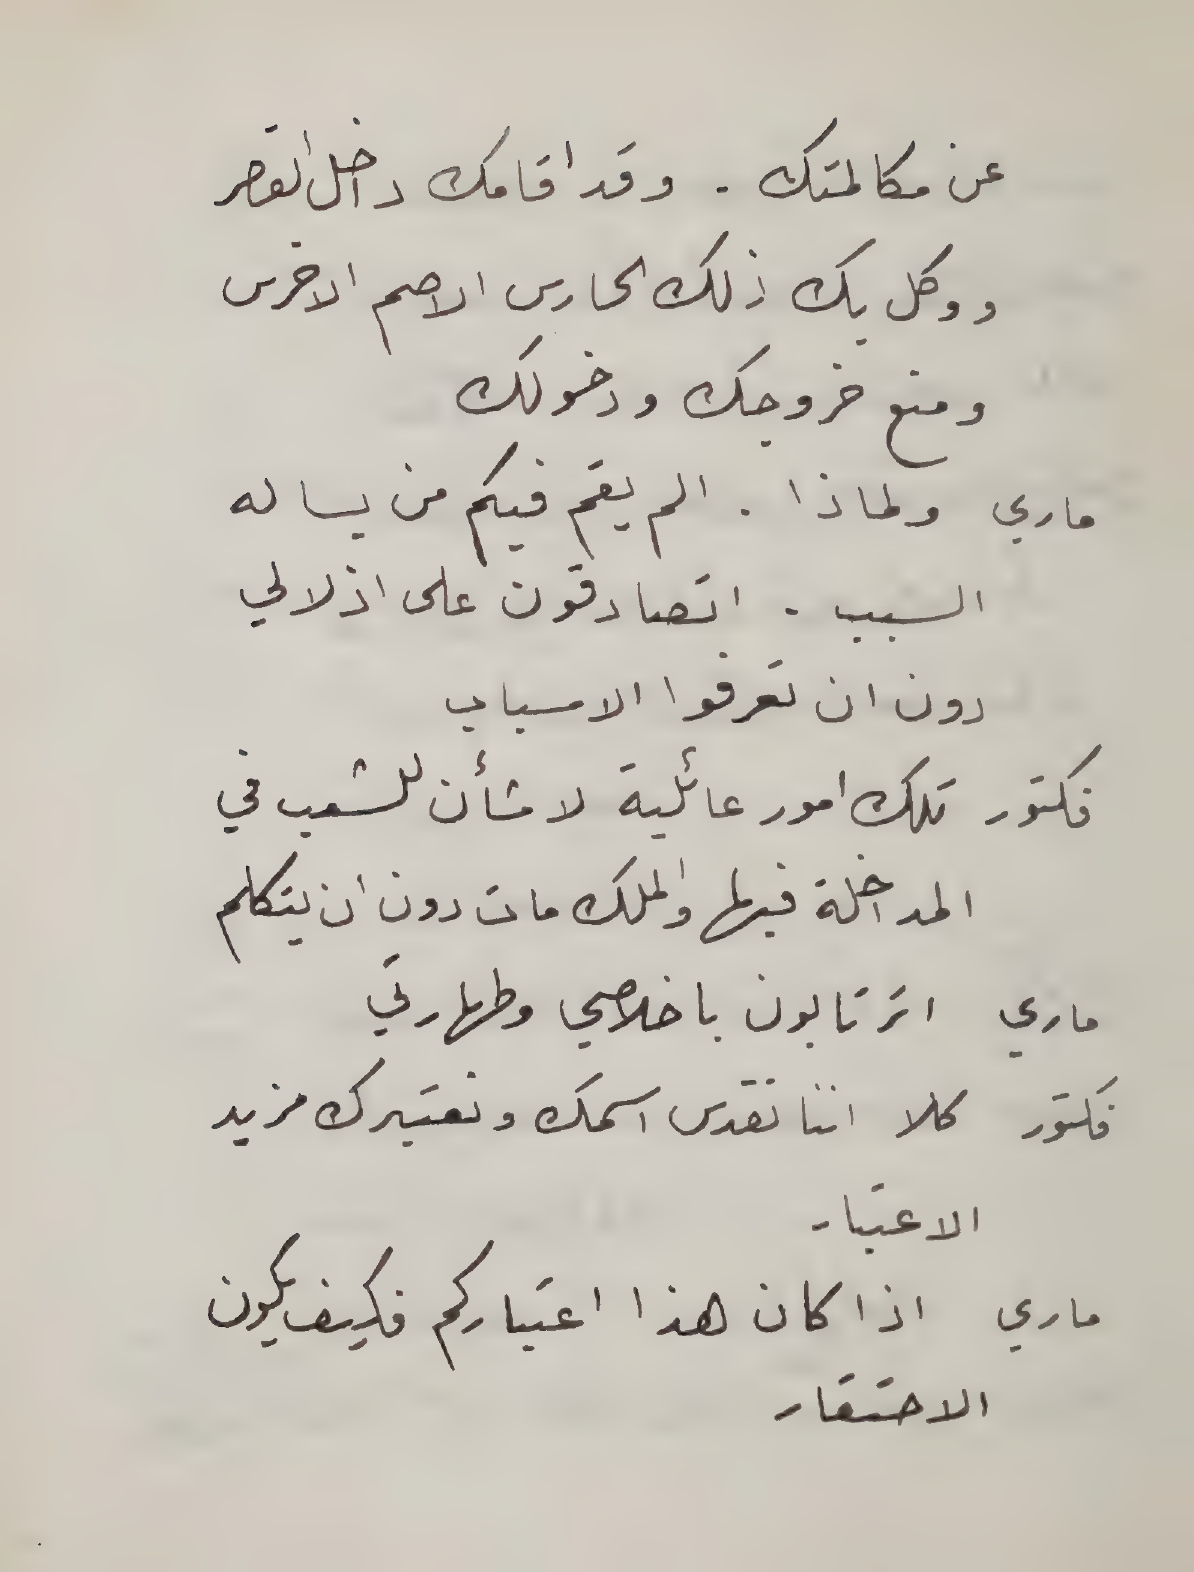 عن مكالمتك . وقد اقامك داخل القصر
ووكل بك ذلك الحارس الاصم الاخرس
ومنع خروجك ودخولك
ماري ولماذا . الم يقم فيكم من يساله
السبب . اتصادقون على اذلالي
دون ان تعرفوا الاسباب
فكتور تلك امور عائلية لا شأن للشعب في
المداخلة فيها والملك مات دون ان يتكلم
ماري اترتابون باخلاصي وطهارتي
فكتور كلا اننا نقدس اسمك ونعتبرك مزيد
الاعتبار
ماري اذا كان هذا اعتباركم فكيف يكون
الاحتقار